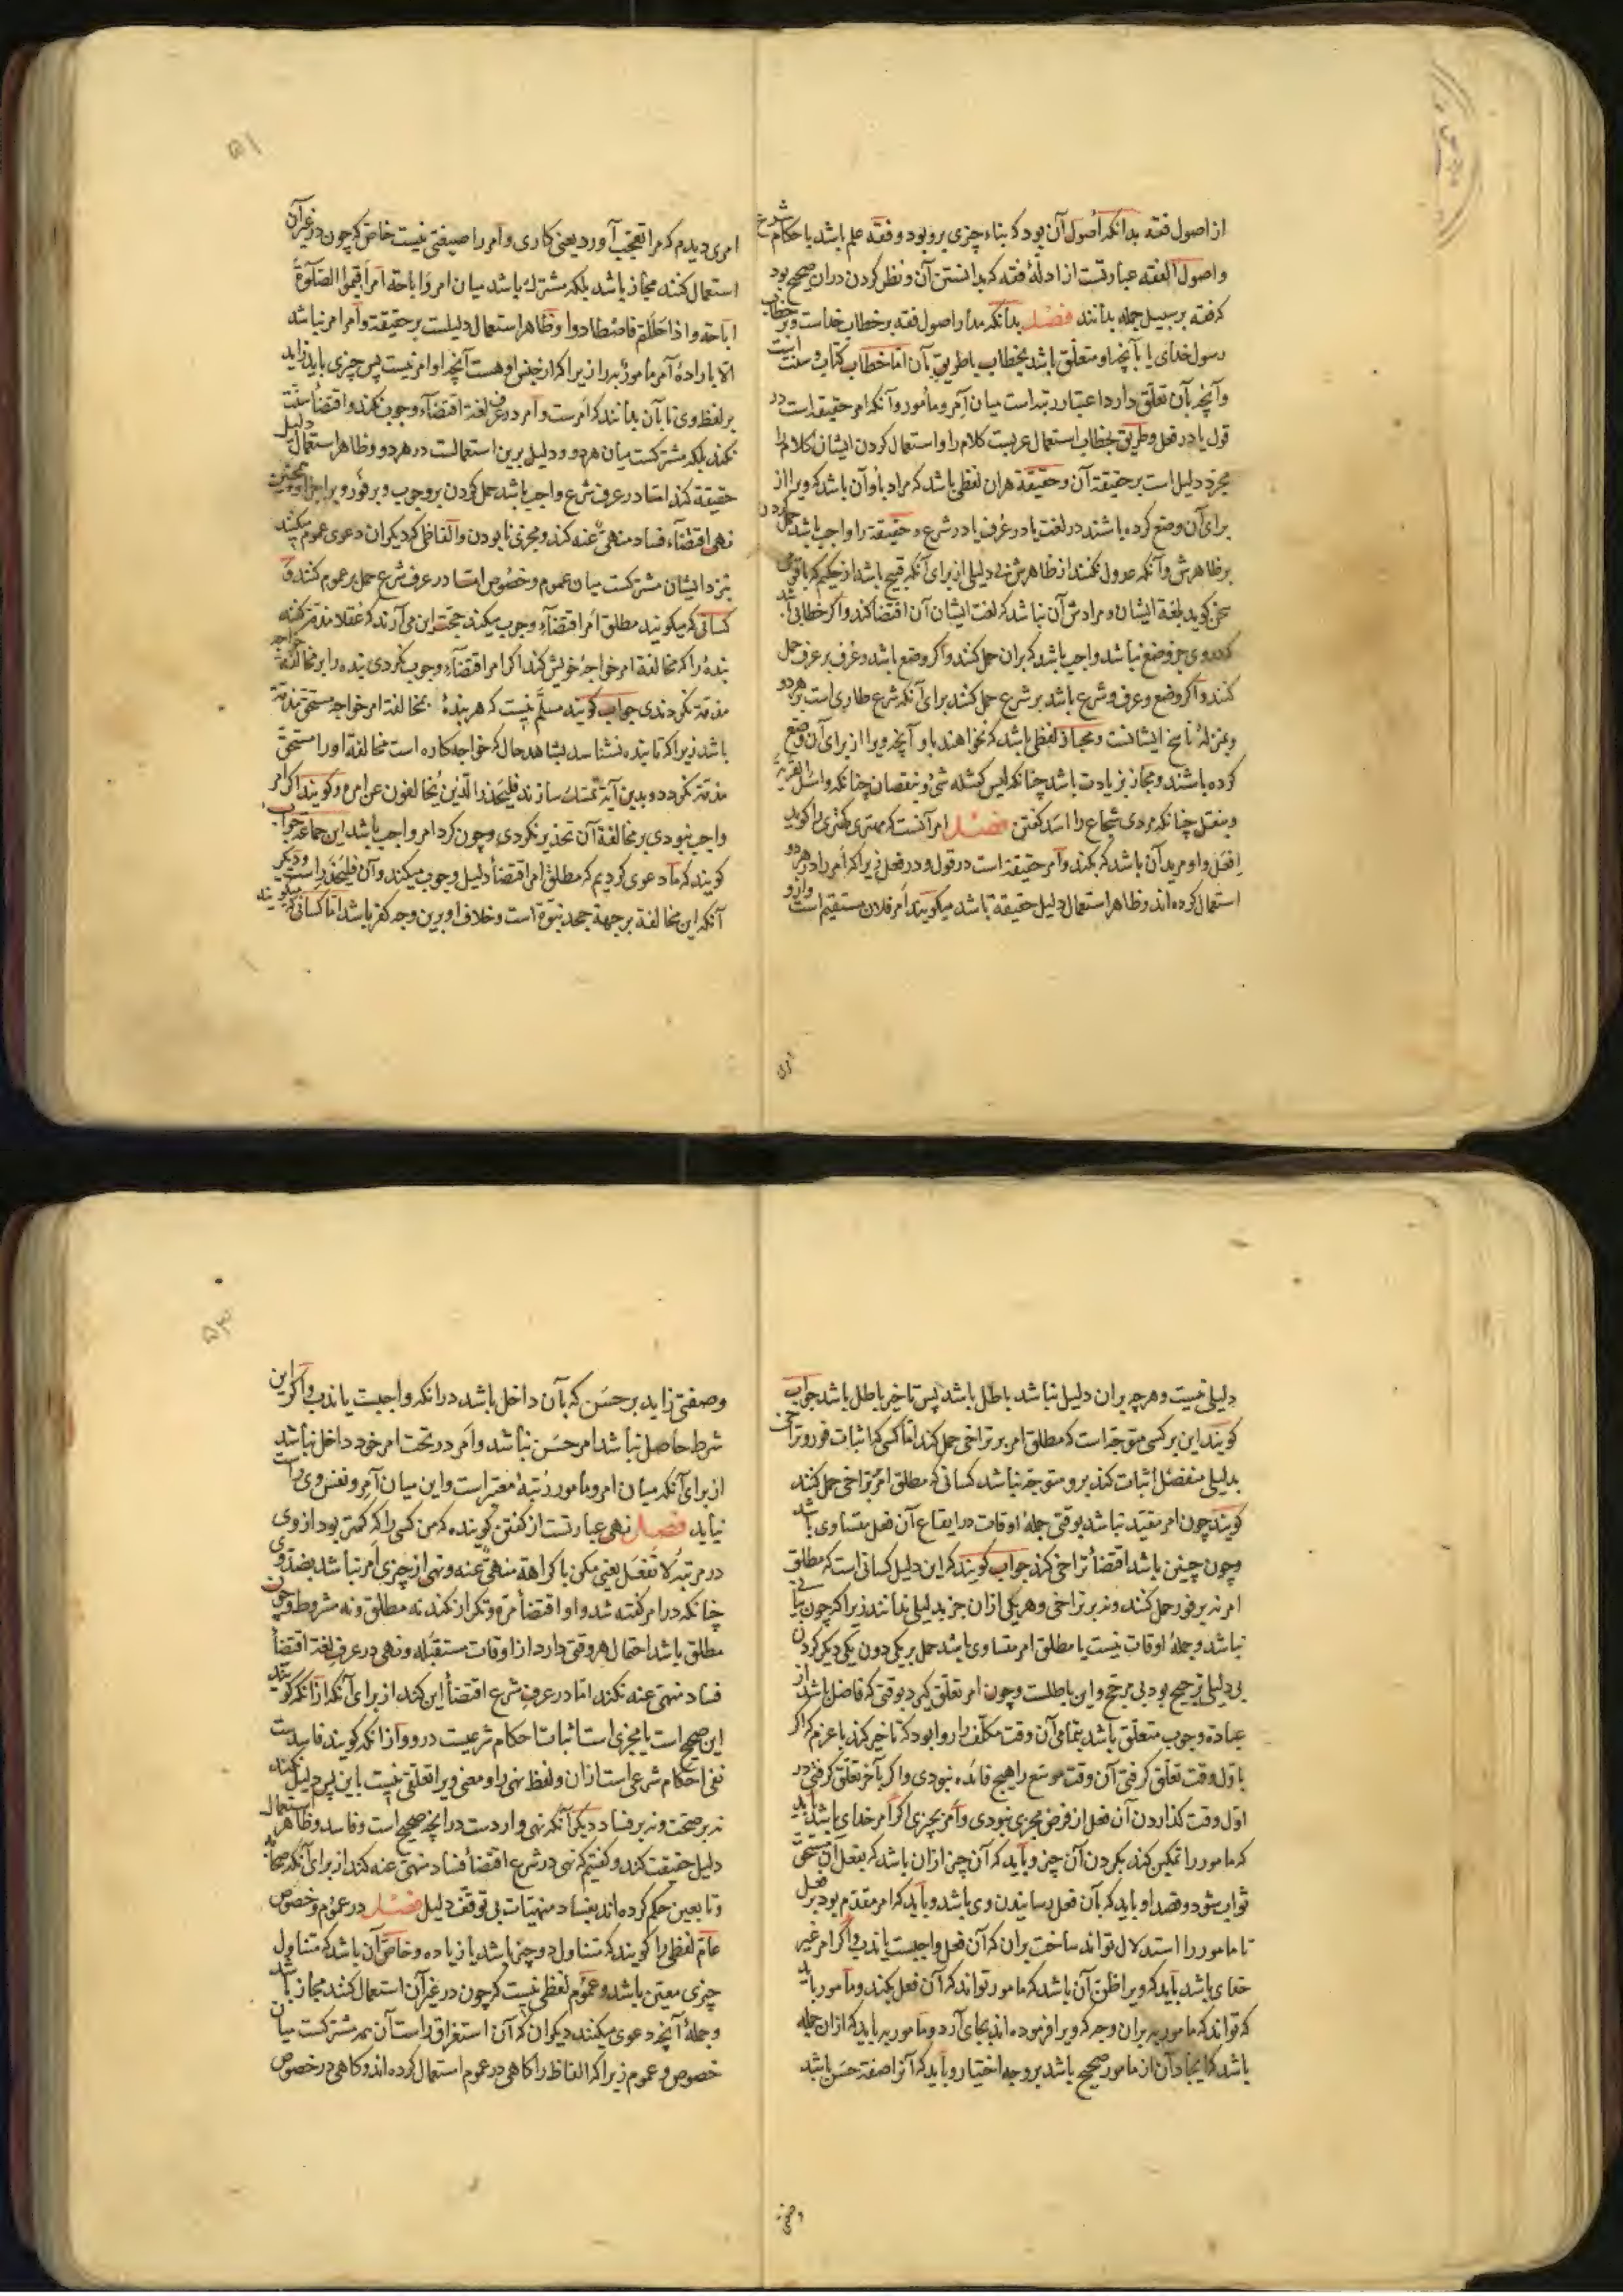 از اصول فقه بدانکه اصول آن بود که بناء چیزی برو بود و فقه علم باشد باحکام شرع
واصول الفقه عبارتست از ادلهٔ فقه که بدانستن آن و نظر کردن دران صحیح بود
که فقه بر سبیل جمله بدانند فصل بدانکه مدار اصول فقه بر خطاب خداست و بر خطاب
رسول خدای یا بآنچه او متعلق باشد بخطاب یا طریق بآن اما خطاب کتاب و سنت است
وآنچه بآن تعلق دارد اعتبار رتبه است میان آمر و مأمور وآنکه امر حقیقه است در
قول یا در فعل و طریق بخطاب استعمال عربست کلام را و استعمال کردن ایشان کلام را
مجرد دلیل است بر حقیقة آن و حقیقة هران لفظی باشد که مراد باو آن باشد که ویرا از
برای آن وضع کرده باشند در لغت یا در عرف یا در شرع و حقیقة را واجب باشد حمل کردن
بر ظاهرش وآنکه عدول نکنند از ظاهرش بی دلیلی از برای آنکه قبیح باشد از حکیم که باقومی
سخن گوید بلغة ایشان و مرادش آن نباشد که لغت ایشان آن اقتضا کند واگر خطابی باشد
که دروی جز وضع نباشد واجب باشد که بران حمل کنند واگر وضع باشد و عرف بر عرف حمل
کنند واگر وضع و عرف و شرع باشد بر شرع حمل کنند برای آنکه شرع طاری است بر هر دو
وبمنزلهٔ ناسخ ایشانست ومجاز لفظی باشد که نخواهند باو آنچه ویرا از برای آن وضع
کرده باشند ومجاز بزیادت باشد چنانکه لیس کمثله شیء و بنقصان چنانکه واسئل القریة
وبنقل چنانکه مردی شجاع را اسد گفتن فصل امر آنست که مهتری کهتری را گوید
افعل واو مرید آن باشد که بکند وامر حقیقة است در قول و در فعل زیراکه امر را در هر دو
استعمال کرده اند و ظاهر استعمال دلیل حقیقة باشد میگویند امر فلان مستقیم است وازو
امری
۵۱
امری دیدم که مرا تعجب آورد یعنی کاری وامر را صیغتی نیست خاص که چون در غیر آن
استعمال کنند مجاز باشد بلکه مشترک باشد میان امر و اباحة امر اقیموا الصلوة
اباحة واذا حللتم فاصطادوا و ظاهر استعمال دلیلست بر حقیقة وامر امر نباشد
الا بارادهٔ آمر مأمور به را زیراکه از جنس او هست آنچه او امر نیست پس چیزی باید زاید
بر لفظ وی تا بآن بدانند که امرست وامر در عرف لغة اقتضاء وجوب نکند واقتضاء سنت
نکند بلکه مشترکست میان هر دو و دلیل برین استعمالست در هر دو و ظاهر استعمال دلیل
حقیقة کند اما در عرف شرع واجب باشد حمل کردن بر وجوب و بر فور و بر اجزا و همچنین
نهی اقتضاء فساد منهی عنه کند و مجزی نابودن والفاظی که دیگران دعوی عموم میکنند
نزد ایشان مشترکست میان عموم و خصوص اما در عرف شرع حمل بر عموم کنند و
کسانی که میگویند مطلق امر اقتضاء وجوب میکند حجت این می آرند که عقلا مذمة کنند
بنده را که مخالفة امر خواجهٔ خویش کند اگر امر اقتضاء وجوب نکردی بنده را بر مخالفة خواجه
مذمة نکردندی جواب گویند مسلم نیست که هر بندهٔ بمخالفة امر خواجه مستحق مذمة
باشد زیراکه تا بنده نشناسد بشاهد حال که خواجه کاره است مخالفة او را مستحق
مذمة نکردد وبدین آیة تمسک سازند فلیحذر الذین یخالفون عن امره وگویند اگر امر
واجب نبودی بر مخالفة آن تحذیر نکردی و چون کرد امر واجب باشد این جماعة جواب
گویند که ما دعوی کردیم که مطلق امر اقتضاء دلیل وجوب میکند وآن فلیحذر است و دیگر
آنکه این مخالفة بر جهة جحد نبوة است و خلاف او برین وجه کفر باشد اما کسانی که میگویند
دلیلی نیست وهرچه بران دلیل نباشد باطل باشد پس تاخیر باطل باشد جواب
گویند این بر کسی متوجه است که مطلق امر بر تراخی حمل کند اما کسی که اثبات فور و تراخی
بدلیلی منفصل اثبات کند برو متوجه نباشد کسانی که مطلق امر بتراخی حمل کنند
گویند چون امر مقید نباشد بوقتی جملهٔ اوقات در ایقاع آن فعل متساوی باشد
وچون چنین باشد اقتضاء تراخی کند جواب گویند که این دلیل کسانی است که مطلق
امر نه بر فور حمل کنند ونه بر تراخی وهر یکی ازان جز بدلیلی ندانند زیراکه چون بیانی
نباشد وجملهٔ اوقات نیست با مطلق امر متساوی باشد حمل بر یکی دون یکی دیگر کردن
بی دلیلی ترجیح بود بی مرجح واین باطلست وچون امر تعلق گیرد بوقتی که فاضل باشد از
عبادة وجوب متعلق باشد بتمامی آن وقت مکلف را روا بود که تاخیر کند باعزم که اگر
باول وقت تعلق گرفتی آن وقت موسع را هیچ فائده نبودی واگر بآخر تعلق گرفتی در
اول وقت گذاردن آن فعل از فرض مجزی نبودی وامر بچیزی اگر امر خدای باشد باید
که مامور را تمکین کند بکردن آن چیز وباید که آن چیز ازان باشد که بفعل آن مستحق
ثواب شود وقصد او باید که بآن فعل رسانیدن وی باشد وباید که امر مقدم بود بر فعل
تا مامور را استدلال تواند ساخت بران که آن فعل واجبست یا ندب واگر امر غیر
خدای باشد باید که ویرا ظن آن باشد که مامور تواند که آن فعل بکند ومامور باید
که تواند که مامور به بران وجه که ویرا فرموده اند بجای آرد ومامور به باید که ازان جمله
باشد که ایجاد آن از مامور صحیح باشد بر وجه اختیار وباید که آنرا صفة حسن باشد
وصفتی
۵۳
وصفتی زاید بر حسن که بآن داخل باشد در انکه واجبست یا ندب واگر این
شرط حاصل نباشد امر حسن نباشد وامر در تحت امر خود داخل نباشد
از برای آنکه میان امر ومأمور رتبه معتبر است واین میان آمر و نفس وی راست
نیاید فصل نهی عبارتست از گفتن گوینده که من کسی را که کمتر بود از وی
در مرتبه لا تفعل یعنی مکن باکراهة منهی عنه ونهی از چیزی امر نباشد بضد وی
چنانکه در امر گفته شد واو اقتضاء مرة وتکرار نکند نه مطلق و نه مشروط وچون
مطلق باشد احتمال هر وقتی دارد از اوقات مستقبله ونهی در عرف لغة اقتضاء
فساد منهی عنه نکند اما در عرف شرع اقتضاء این کند از برای آنکه ازانکه گویند
این صحیح است یا مجزی است اثبات احکام شرعیست درو وازانکه گویند فاسدست
نفی احکام شرعی است ازان ولفظ نهی را ومعنی ویرا تعلقی نیست باین پس دلیل نکند
نه بر صحت ونه بر فساد دیگر آنکه نهی واردست درانچه صحیح است وفاسد وظاهر استعمال
دلیل حقیقت کند وگفتیم که نهی در شرع اقتضاء فساد منهی عنه کند از برای آنکه صحابه
وتابعین حکم کرده اند بفساد منهیات بی توقف دلیل فصل در عموم وخصوص
عام لفظی را گویند که متناول دو چیز باشد یا زیاده وخاص آن باشد که متناول
چیزی معین باشد وعموم لفظی نیست که چون در غیر آن استعمال کنند مجاز باشد
وجملهٔ آنچه دعوی میکنند دیگران که آن استغراق راست آن همه مشترکست میان
خصوص وعموم زیراکه الفاظ را گاهی در عموم استعمال کرده اند وگاهی در خصوص